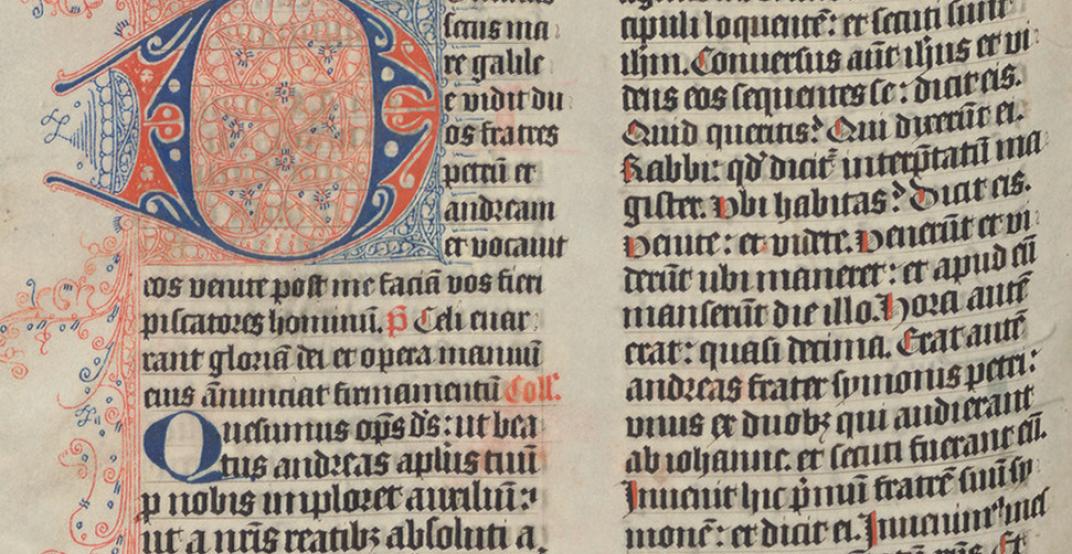 secus ma
re galile
e vidit du
os fratres
petrū et
andream
et vocauit
eos venite post me faciā vos fieri
piscatores hominū. p̄ Celi enar
rant gloriā dei et opera manuū
eius ānunciat firmamentū Coll'.
Quesumus op̄s ds̄: ut bea
tus andreas apl̄us tuū
p nobis imploret auxiliū:
ut a nr̄is reatibꝫ absoluti a
cipuli loquentē: et secuti sunt
ihm̄. Conuersus aūt ihūs et vi
dens eos sequentes se: dicit eis.
Quid queritis? Qui dixerūt ei.
Rabbi: qd̄ dicit̄ interp̄tatū ma
gister. Vbi habitas? Dicit eis.
Venite: et videte. Venerūt et vi
derūt ubi maneret: et apud eū
manserūt die illo. Hora autē
erat: quasi decima. Erat autē
andreas frater symonis petri:
vnus ex duobꝫ qui audierant
ab iohanne. et secuti fuerant eū.
Inuenit hic p̄mū fratrē suū sy
monē: et dicit ei. Inuenimꝰ mes